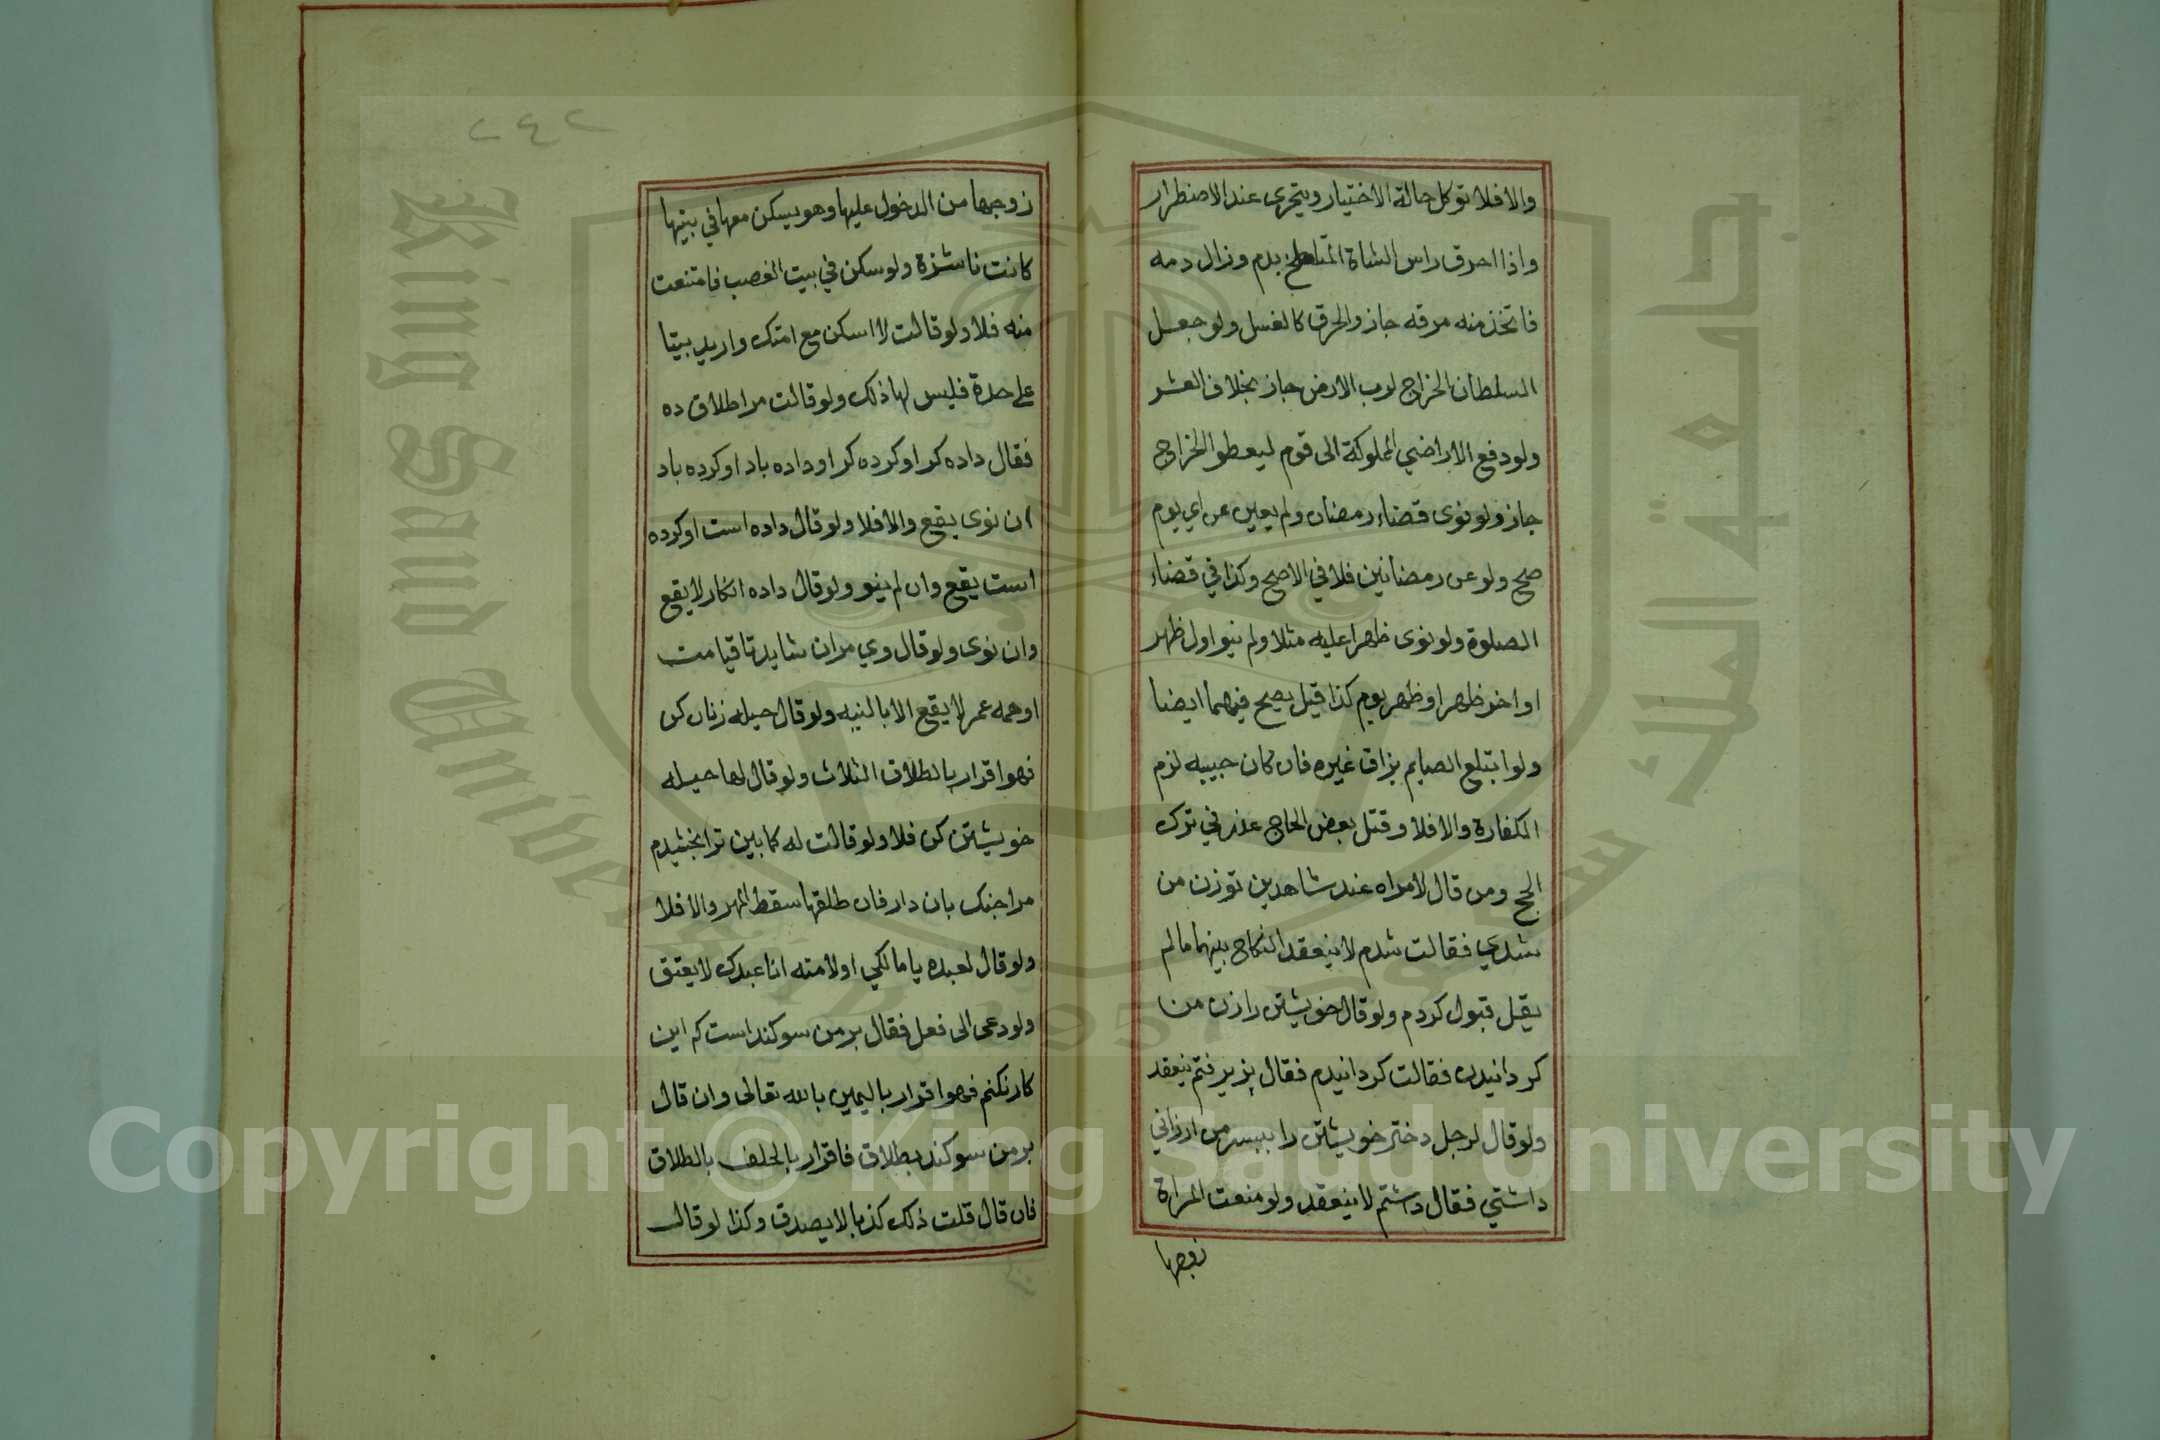 والا فلا توكل حالة الاختيار ويتحرى عند الاضطرار
واذا احرق راس الشاة المتلطخ بدم وزال دمه
فاتخذ منه مرقه جاز والحرق كالغسل ولو جعل
السلطان الخراج لرب الارض جاز بخلاف العشر
ولو دفع الاراضي المملوكة الى قوم ليعطوا الخراج
جاز ولو نوى قضاء رمضان ولم يعين عن اي يوم
صح ولو عن رمضانين فلا في الاصح وكذا في قضاء
الصلوة ولو نوى ظهرا عليه مثلا ولم ينو اول ظهر
او اخر ظهر او ظهر يوم كذا قيل يصح فيهما ايضا
ولو ابتلع الصايم بزاق غيره فان كان حبيبه لزم
الكفارة والا فلا وقتل بعض الحاج عذر في ترك
الحج ومن قال لامراه عند شاهدين تو زن من
شدي فقالت شدم لا ينعقد النكاح بينهما مالم
يقل قبول كردم ولو قال خويشتن را زن من
كردانيدي فقالت كردانيدم فقال پزيرفتم ينعقد
ولو قال لرجل دختر خويشتن را بپسر من ارزاني
داشتي فقال داشتم لا ينعقد ولو منعت المراة
زوجها
٢٤٢
زوجها من الدخول عليها وهو يسكن معها في بيتها
كانت ناشزة ولو سكن في بيت الغصب فامتنعت
منه فلا ولو قالت لا اسكن مع امتك واريد بيتا
على حدة فليس لها ذلك ولو قالت مرا طلاق ده
فقال داده كر او كرده كر او داده باد او كرده باد
ان نوى يقع والا فلا ولو قال داده است او كرده
است يقع وان لم ينو ولو قال داده انكار لا يقع
وان نوى ولو قال وي مرا نشايد تا قيامت
او همه عمر لا يقع الا بالنيه ولو قال حيله زنان كن
فهو اقرار بالطلاق الثلاث ولو قال لها حيله
خويشتن كن فلا ولو قالت له كابين ترا بخشيدم
مرا چنك باز دار فان طلقها سقط المهر والا فلا
ولو قال لعبده يا مالكي او لامته انا عبدك لا يعتق
ولو دعى الى فعل فقال بر من سوكند است كه اين
كار نكنم فهو اقرار باليمين بالله تعالى وان قال
بر من سوكند بطلاق فاقرار بالحلف بالطلاق
فان قال قلت ذلك كذبا لا يصدق وكذا لو قال
King Saud University
جامعة الملك سعود
1957
Copyright © King Saud University